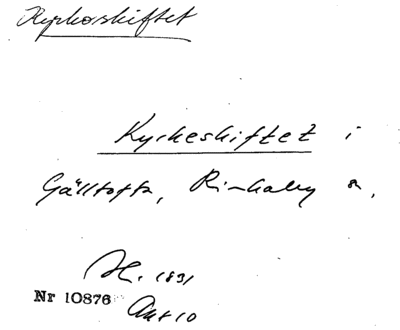 Kyrkoskiftet
Kyrkeskiftet i
Gälltofta, Rinkaby sn,
H. 1891
Nr 10876
Akt 10